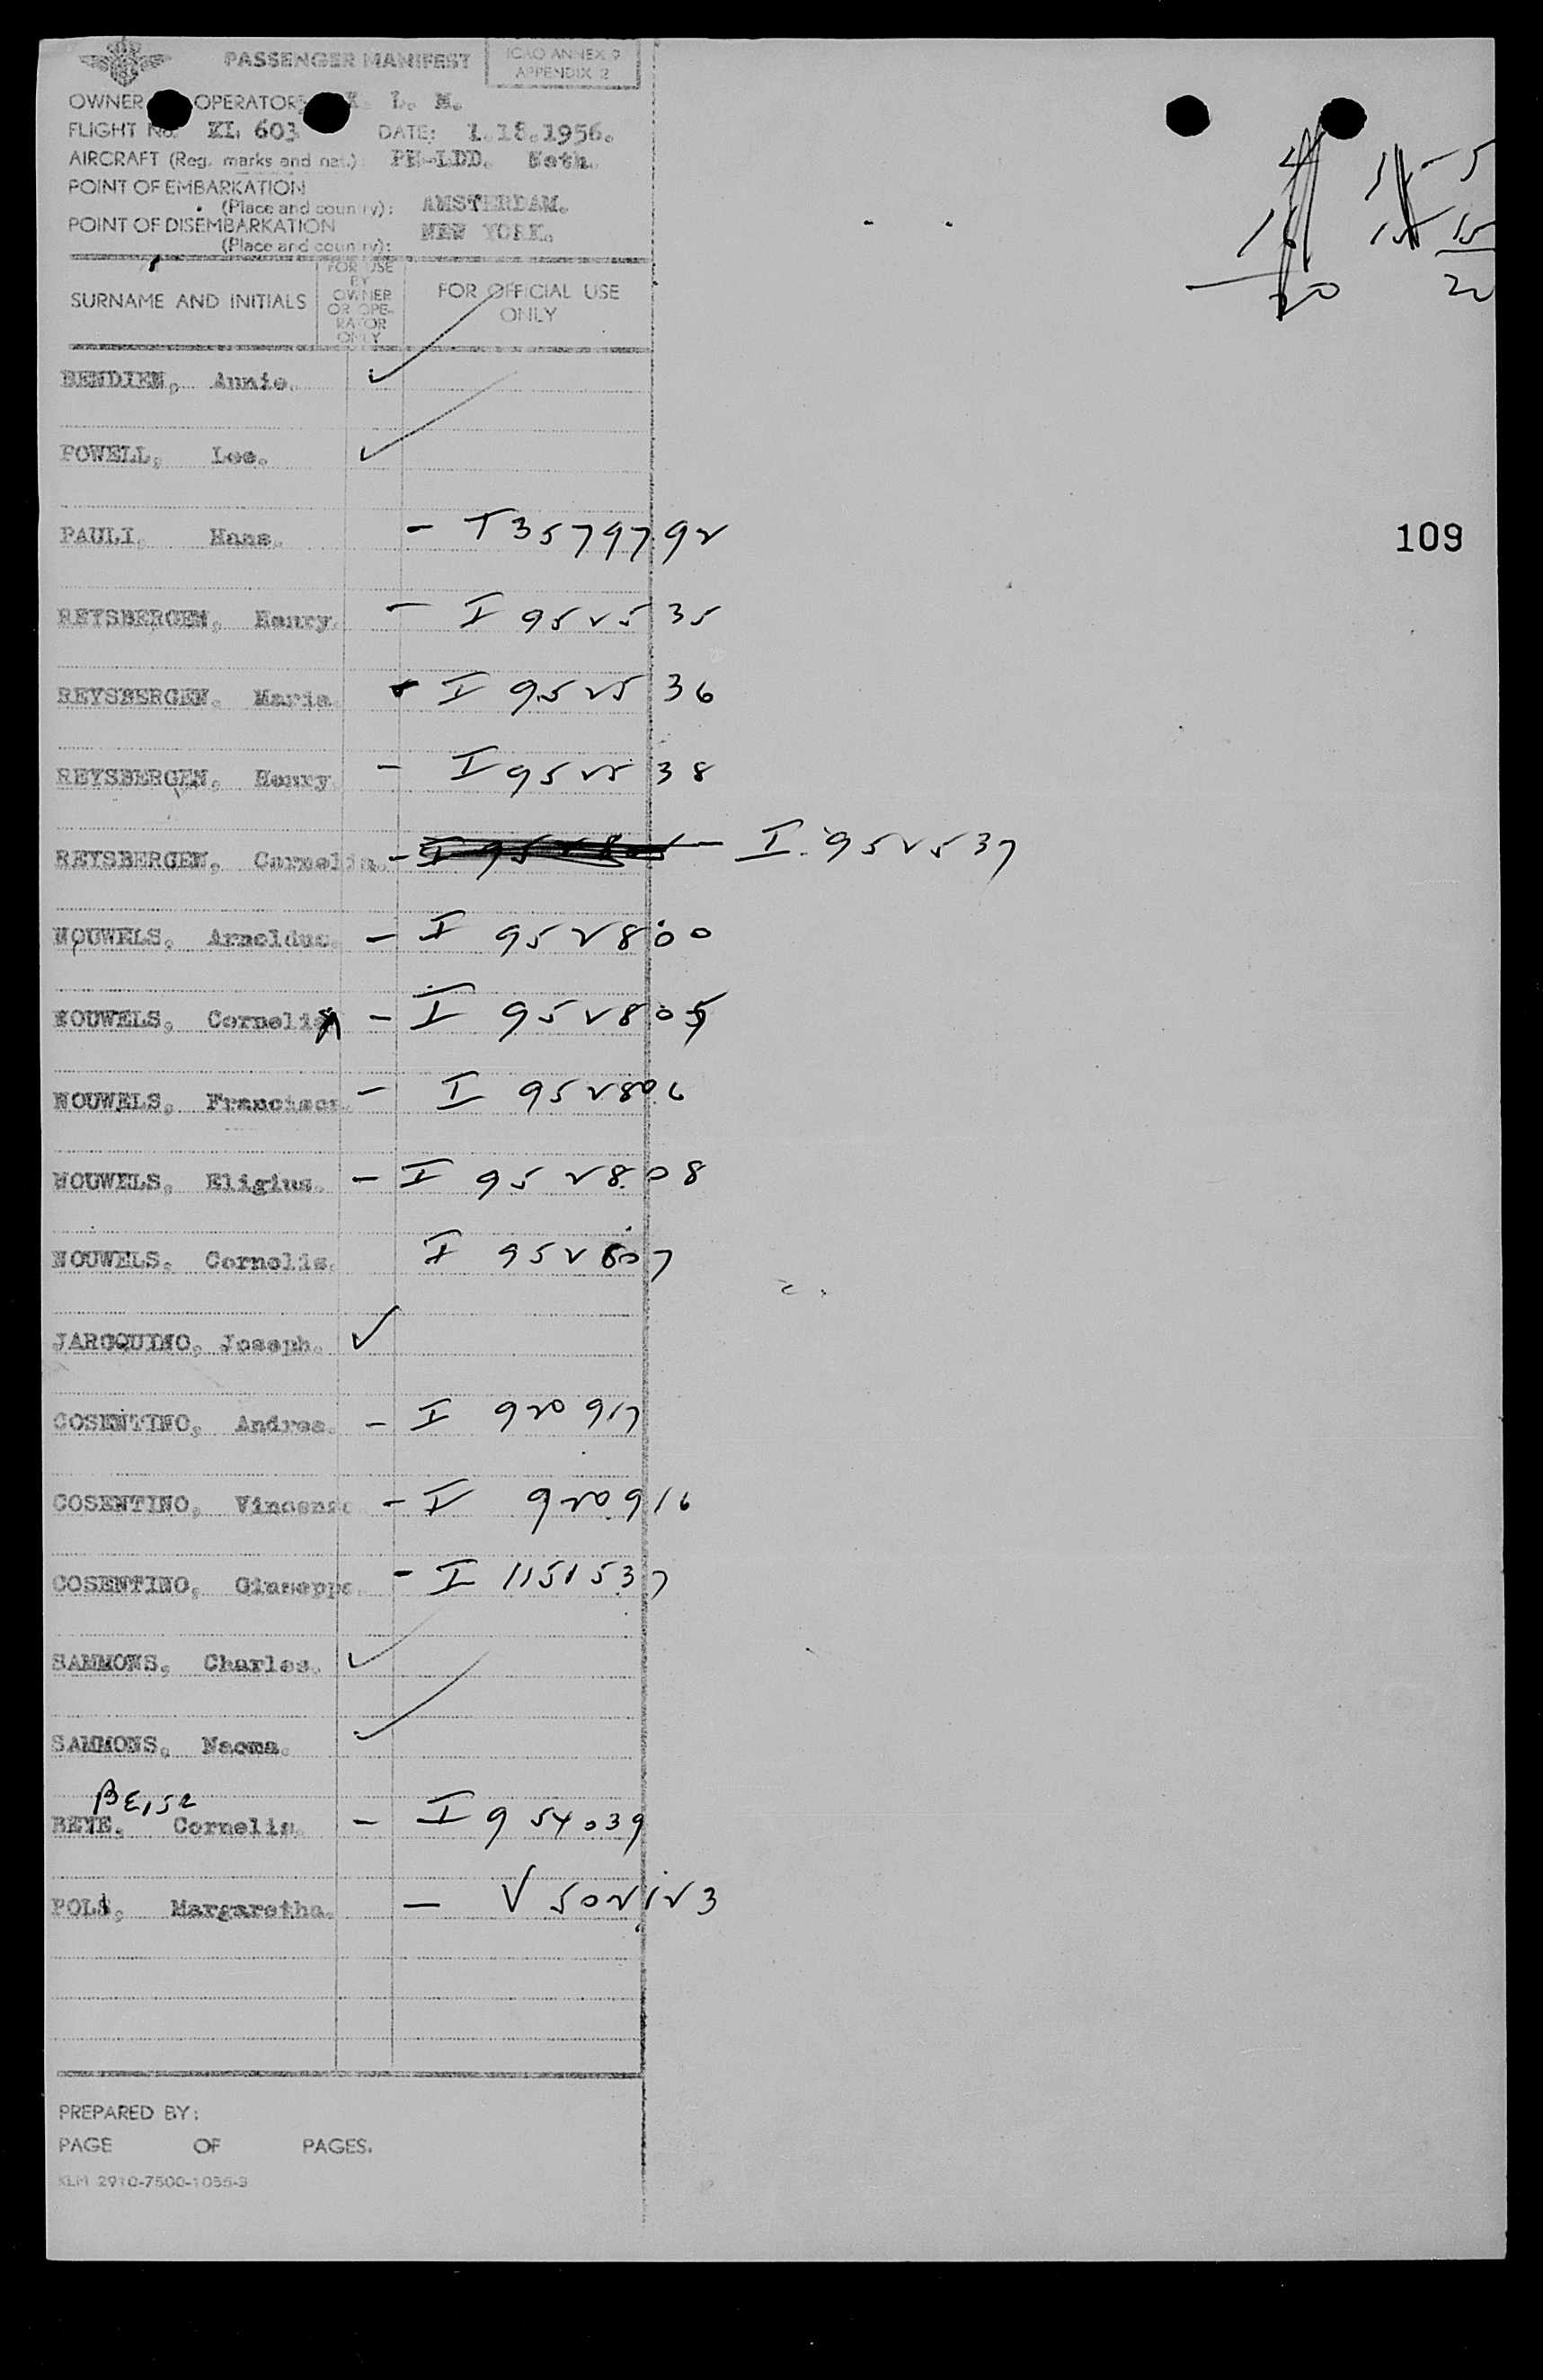 PASSENGER MANIFEST
ICAO ANNEX 9
APPENDIX 2
OWNER OPERATOR: K. L. M.
FLIGHT No. KL 603 DATE: 1.18.1956.
AIRCRAFT (Reg. marks and nat.): PH-LDD. Neth.
POINT OF EMBARKATION
(Place and country): AMSTERDAM.
POINT OF DISEMBARKATION
(Place and country): NEW YORK.
4 5 - 5
16 15 15
20 20
SURNAME AND INITIALS
FOR USE BY OWNER OR OPERATOR ONLY
FOR OFFICIAL USE ONLY
BENDIEN, Annie. ✓
POWELL, Lee. ✓
PAULI, Hans. - T3579792
109
REYSBERGEN, Henry. - I 952535
REYSBERGEN, Maria. - I 952536
REYSBERGEN, Henry. - I 952538
REYSBERGEN, Cornelia. - I 952537
NOUWELS, Arnoldus. - I 952800
NOUWELS, Cornelia - I 952805
NOUWELS, Francisca. - I 952806
NOUWELS, Eligius. - I 952808
NOUWELS, Cornelis. I 952807
JARCQUINO, Joseph. ✓
COSENTINO, Andrea. - I 920917
COSENTINO, Vincenzo - I 920916
COSENTINO, Giuseppe. - I 1151537
SAMMONS, Charles. ✓
SAMMONS, Naoma. ✓
BEYE, Cornelis. - I 954039
POLS, Margaretha. - V 502123
PREPARED BY:
PAGE OF PAGES.
KLM 2910-7500-1055-3